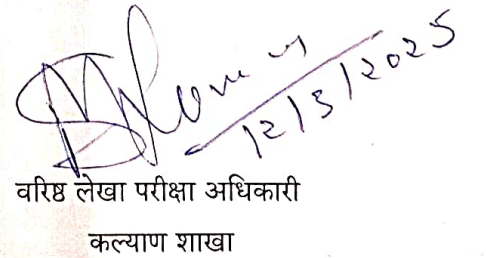 12/3/2025
वरिष्ठ लेखा परीक्षा अधिकारी
कल्याण शाखा